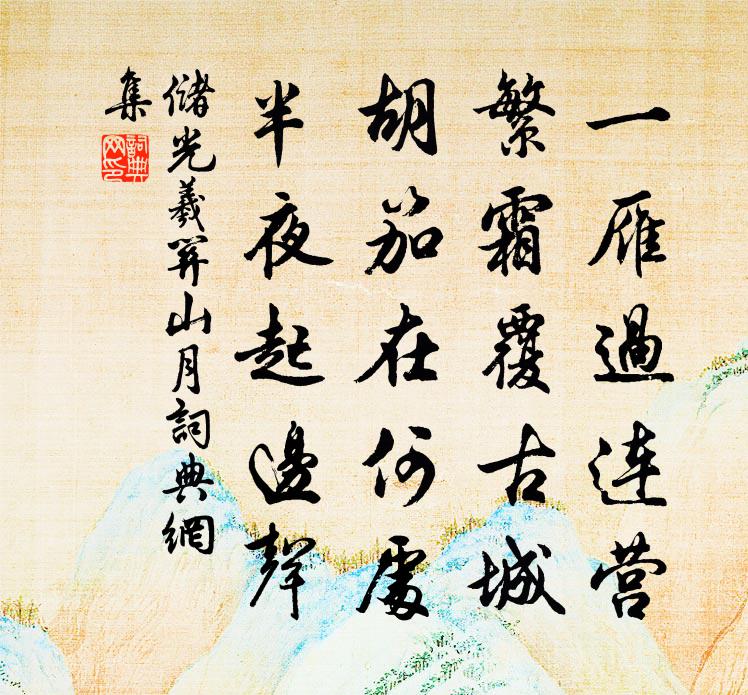 一雁過连营
繁霜覆古城
胡笳在何處
半夜起邊聲
儲光羲關山月詞典網
集
詞典
网印